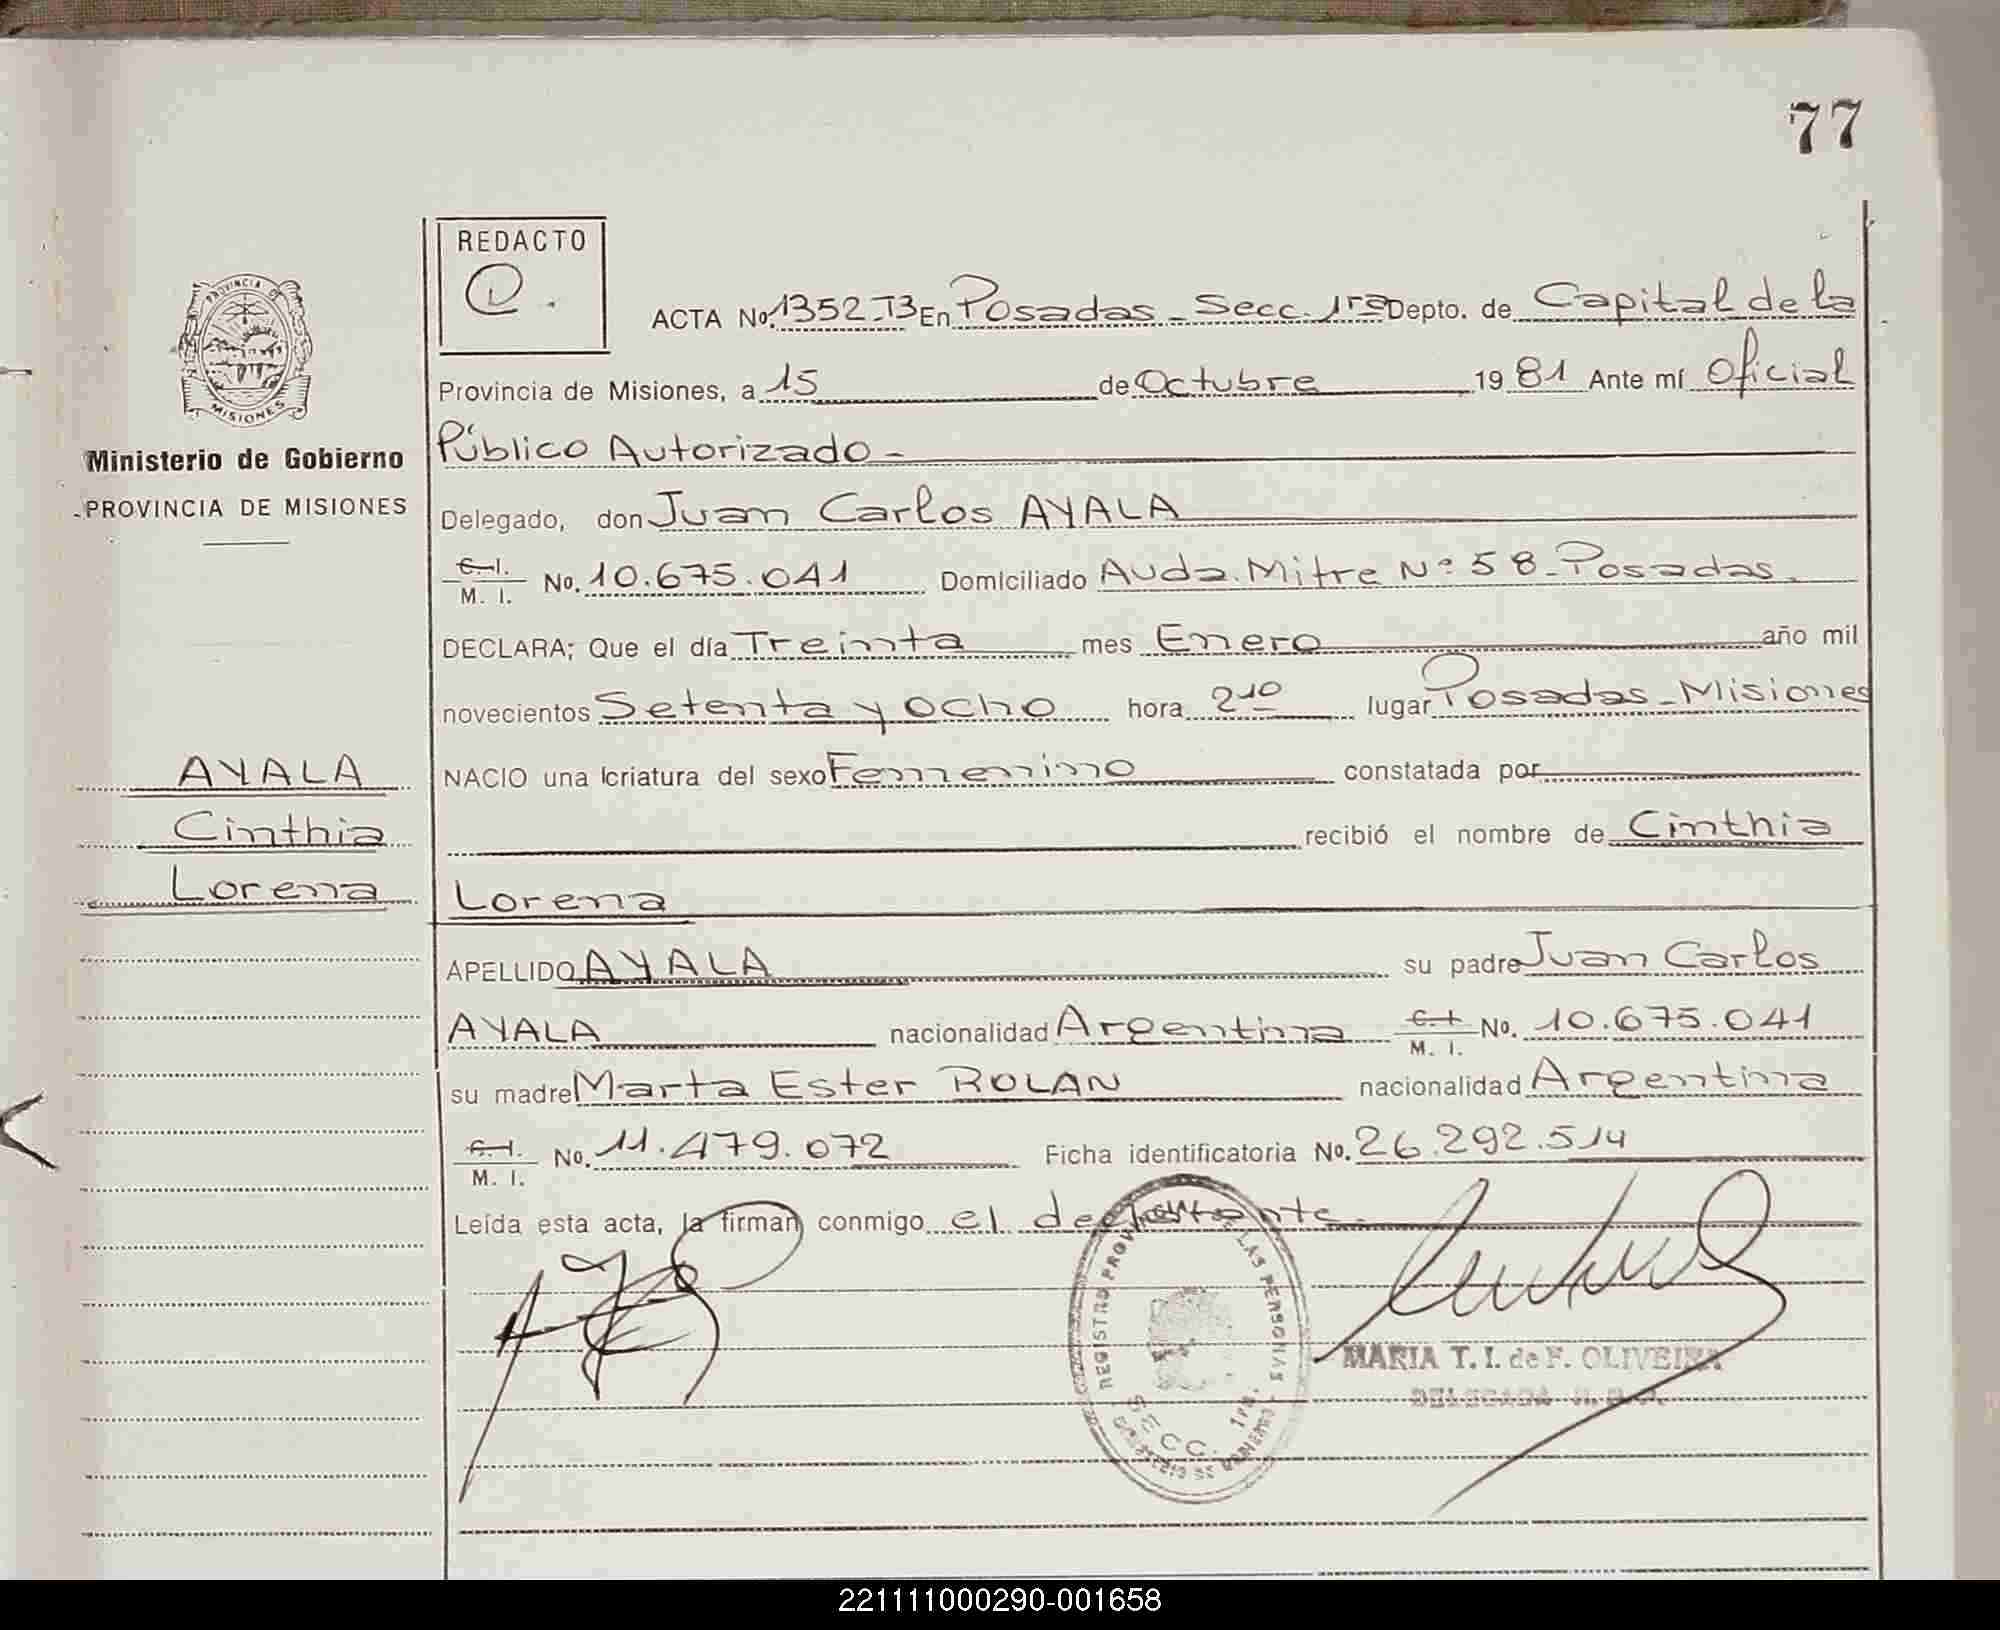 77
REDACTO
ACTA No. 1352-T3 En Posadas - Secc. 1ra Depto. de Capital de la
Provincia de Misiones, a 15 de Octubre 1981 Ante mí Oficial
Público Autorizado -
Delegado, don Juan Carlos AYALA
C. I.
M. I. No. 10.675.041 Domiciliado Avda. Mitre Nº 58 - Posadas.
DECLARA; Que el día Treinta mes Enero año mil
novecientos Setenta y ocho hora 2¹⁰ lugar Posadas - Misiones
NACIO una criatura del sexo Femenino constatada por
recibió el nombre de Cinthia
Lorena
APELLIDO AYALA su padre Juan Carlos
AYALA nacionalidad Argentina C. I. No. 10.675.041
M. I.
su madre Marta Ester ROLAN nacionalidad Argentina
C. I.
M. I. No. 11.479.072 Ficha identificatoria No. 26.292.514
Leída esta acta, la firman conmigo el declarante.
PROVINCIA DE
MISIONES
Ministerio de Gobierno
PROVINCIA DE MISIONES
AYALA
Cinthia
Lorena
REGISTRO PROV. DE LAS PERSONAS
SECC. 1ra.
MINISTERIO DE GOBIERNO
MARIA T. I. de F. OLIVEIRA
DELEGADA
221111000290-001658